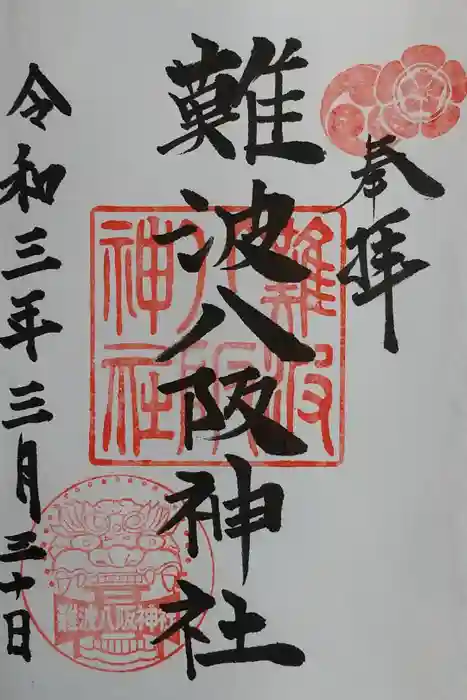 奉拝
難波八阪神社
難波八阪神社
難波八阪神社
令和三年三月三十日